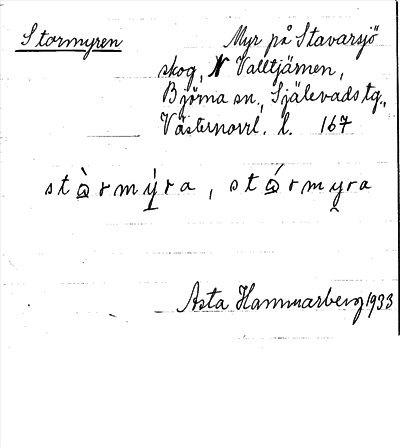 Stormyren
Myr på Stavarsjö
skog, N Valltjärnen,
Björna sn., Själevads tg.,
Västernorrl. l. 167
stò̱rmy̱̍ra, stó̱rmy̯ra
Asta Hammarberg 1933